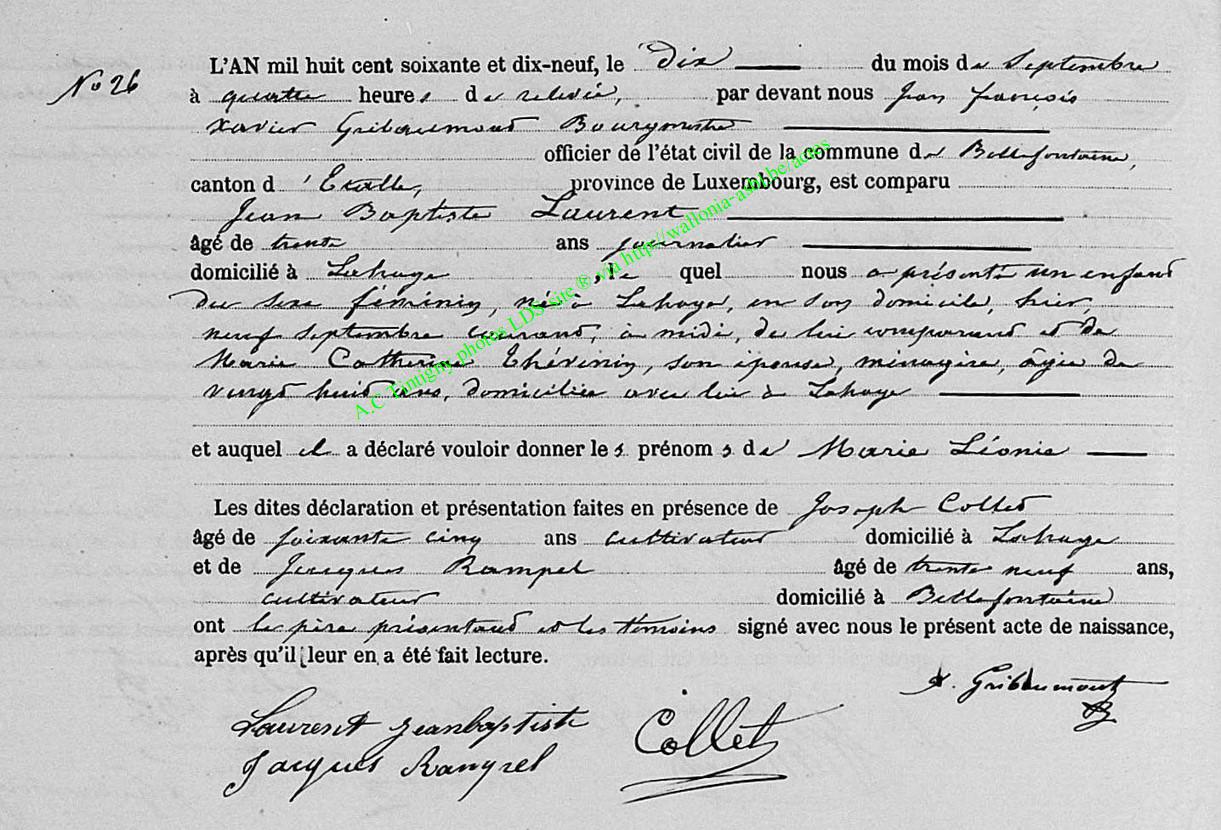 No 26
L'AN mil huit cent soixante et dix-neuf, le dix du mois de Septembre
à quatre heures de relevée, par devant nous Jean françois
Xavier Gribaumont Bourgmestre
officier de l'état civil de la commune de Bellefontaine,
canton d'Etalle, province de Luxembourg, est comparu
Jean Baptiste Laurent
âgé de trente ans journalier
domicilié à Lahage, le quel nous a présenté un enfant
du sexe féminin, né à Lahage, en son domicile, hier,
neuf Septembre courant, à midi, de lui comparant et de
Marie Catherine Thévenin, son épouse, ménagère, âgée de
vingt huit ans, domiciliée avec lui à Lahage
et auquel il a déclaré vouloir donner les prénoms de Marie Léonie
Les dites déclaration et présentation faites en présence de Joseph Collet
âgé de soixante cinq ans cultivateur domicilié à Lahage
et de Jacques Rampel âgé de trente neuf ans,
cultivateur domicilié à Bellefontaine
ont le père présentant et les témoins signé avec nous le présent acte de naissance,
après qu'il leur en a été fait lecture.
X. Gribaumont
Laurent jeanbaptiste
Collet
Jacques
A.C Tintigny photos LDS site ® via http://wallonia-asbl.be/actes